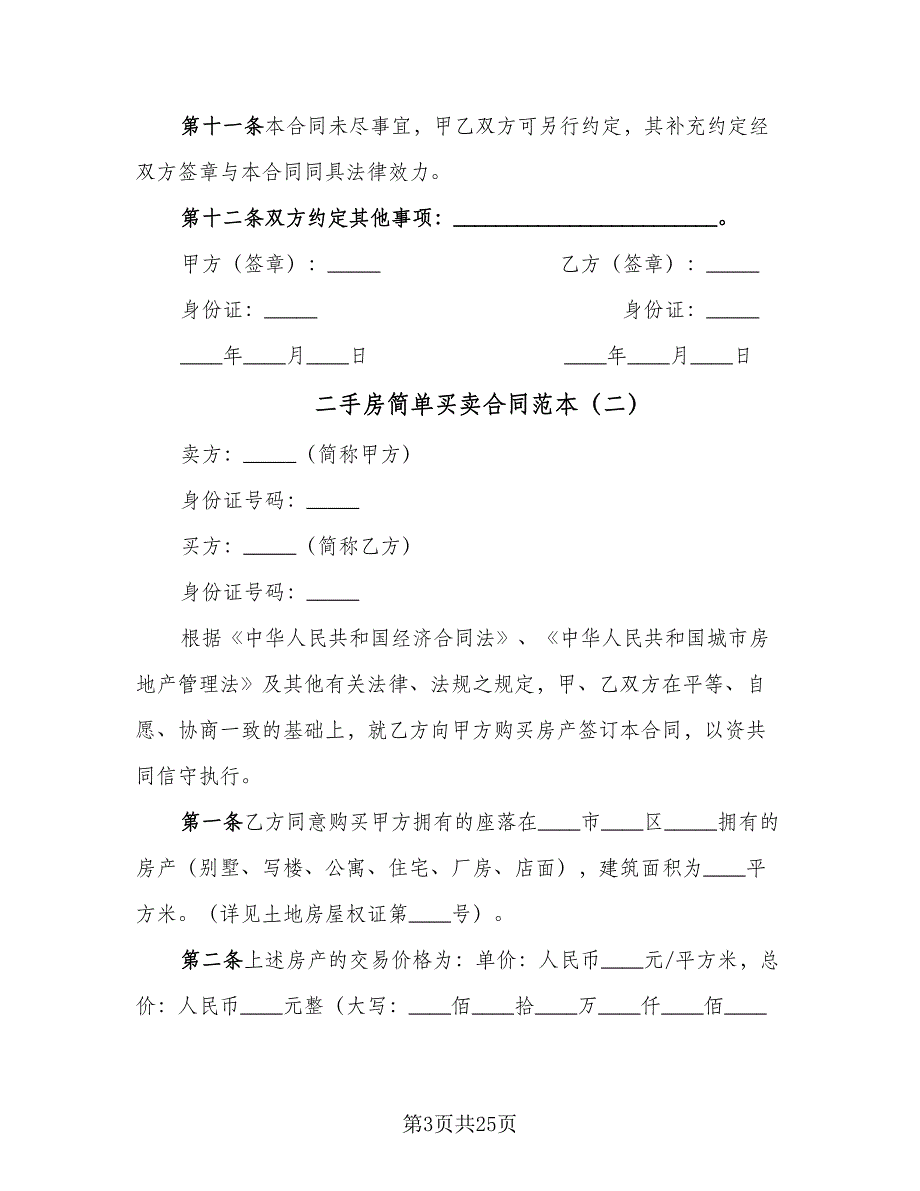 第十一条本合同未尽事宜，甲乙双方可另行约定，其补充约定经
双方签章与本合同同具法律效力。
第十二条双方约定其他事项：_________________________。
甲方（签章）：_____ 乙方（签章）：_____
身份证：_____ 身份证：_____
____年____月____日 ____年____月____日
二手房简单买卖合同范本（二）
卖方：_____（简称甲方）
身份证号码：_____
买方：_____（简称乙方）
身份证号码：_____
根据《中华人民共和国经济合同法》、《中华人民共和国城市房
地产管理法》及其他有关法律、法规之规定，甲、乙双方在平等、自
愿、协商一致的基础上，就乙方向甲方购买房产签订本合同，以资共
同信守执行。
第一条乙方同意购买甲方拥有的座落在____市____区_____拥有的
房产（别墅、写楼、公寓、住宅、厂房、店面），建筑面积为____平
方米。（详见土地房屋权证第____号）。
第二条上述房产的交易价格为：单价：人民币____元/平方米，总
价：人民币____元整（大写：____佰____拾____万____仟____佰____
第3页共25页